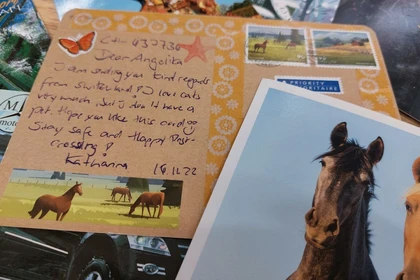 Dear Angelika
I am sending you kind regards
from Switzerland! I love cats
very much, but I don't have a
pet. Hope you like this card
Stay safe and Happy Post-
crossing!
Katharina 18.11.22
PRIORITY
PRIORITAIRE
M